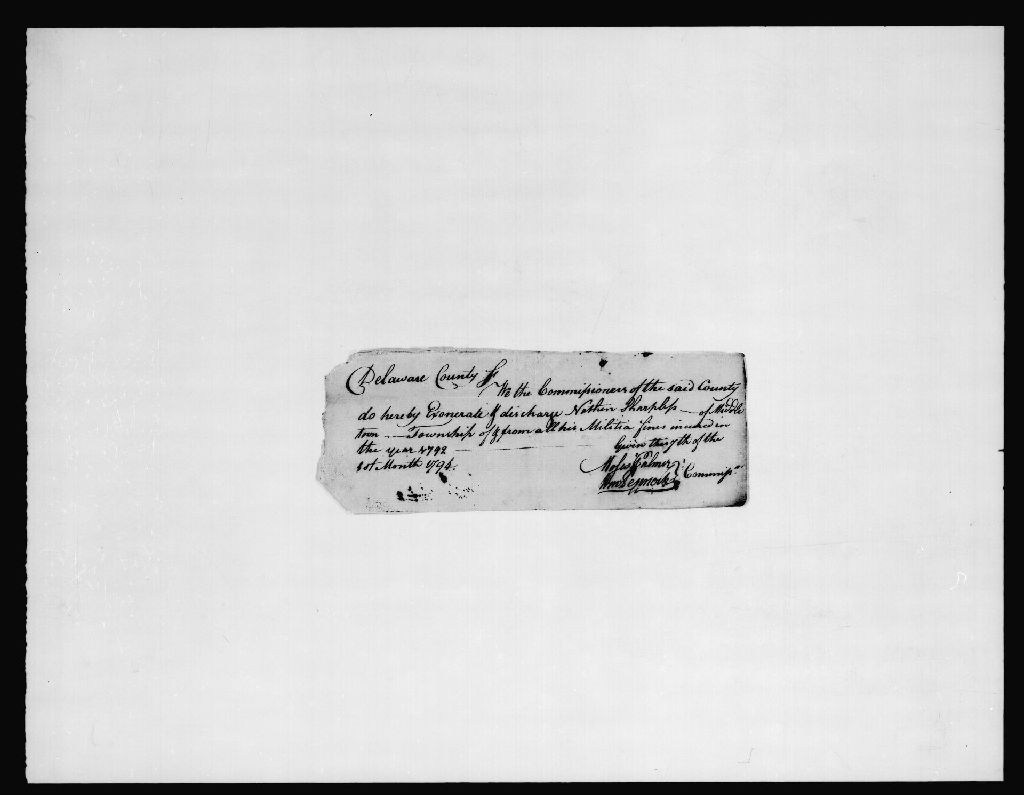 Delaware County ss We the Commissioners of the said County
do hereby Exonerate & discharge Nathan Sharpless — of Middle
town — Township of & from all his Militia fines incurred in
the year 1792 — Given this 7th of the
1st Month 1794.
Moses Palmer
Commiss